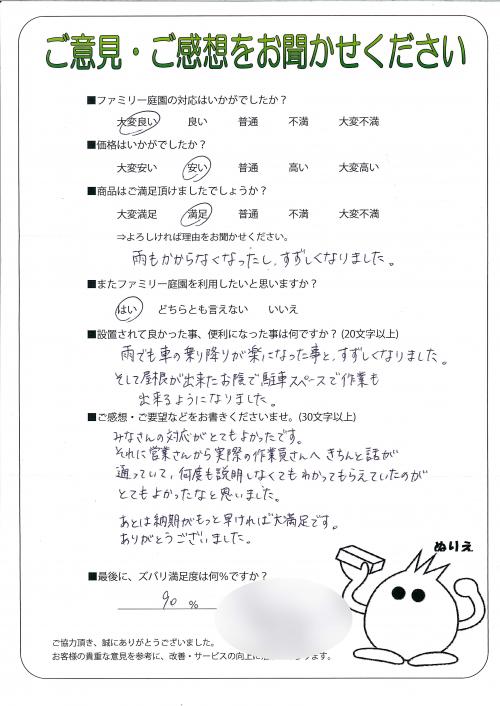 ご意見・ご感想をお聞かせください
■ファミリー庭園の対応はいかがでしたか？
大変良い 良い 普通 不満 大変不満
■価格はいかがでしたか？
大変安い 安い 普通 高い 大変高い
■商品はご満足頂けましたでしょうか？
大変満足 満足 普通 不満 大変不満
⇒よろしければ理由をお聞かせください。
雨もかからなくなったし、すずしくなりました。
■またファミリー庭園を利用したいと思いますか？
はい どちらとも言えない いいえ
■設置されて良かった事、便利になった事は何ですか？(20文字以上)
雨でも車の乗り降りが楽になった事と、すずしくなりました。
そして屋根が出来たお陰で駐車スペースで作業も
出来るようになりました。
■ご感想・ご要望などをお書きくださいませ。(30文字以上)
みなさんの対応がとてもよかったです。
それに営業さんから実際の作業員さんへきちんと話が
通っていて、何度も説明しなくてもわかってもらえていたのが
とてもよかったなと思いました。
あとは納期がもっと早ければ大満足です。
ありがとうございました。
ぬりえ
■最後に、ズバリ満足度は何％ですか？
90 %
ご協力頂き、誠にありがとうございました。
お客様の貴重な意見を参考に、改善・サービスの向上に
ります。